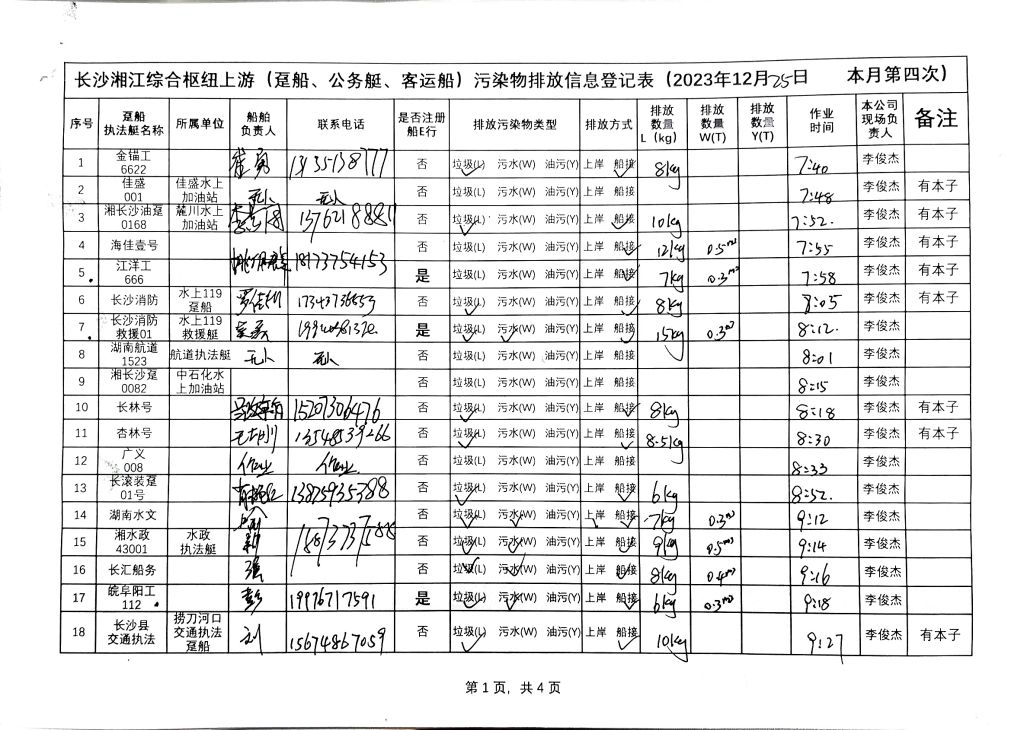 长沙湘江综合枢纽上游（趸船、公务艇、客运船）污染物排放信息登记表（2023年12月25日 本月第四次）
序号 趸船执法艇名称 所属单位 船舶负责人 联系电话 是否注册船E行 排放污染物类型 排放方式 排放数量L（kg） 排放数量W(T) 排放数量Y(T) 作业时间 本公司现场负责人 备注
1 金锚工6622 否 垃圾(L) 污水(W) 油污(Y) 上岸 船接 8kg 7:40 李俊杰
2 佳盛001 佳盛水上加油站 无人 无人 否 垃圾(L) 污水(W) 油污(Y) 上岸 船接 7:48 李俊杰 有本子
3 湘长沙油趸0168 麓川水上加油站 否 垃圾(L) 污水(W) 油污(Y) 上岸 船接 10kg 7:52. 李俊杰 有本子
4 海佳壹号 否 垃圾(L) 污水(W) 油污(Y) 上岸 船接 12kg 0.5m3 7:55 李俊杰 有本子
5 江洋工666 18173754153 是 垃圾(L) 污水(W) 油污(Y) 上岸 船接 7kg 0.3m3 7:58 李俊杰 有本子
6 长沙消防 水上119趸船 否 垃圾(L) 污水(W) 油污(Y) 上岸 船接 8kg 8:05 李俊杰 有本子
7 长沙消防救援01 水上119救援艇 是 垃圾(L) 污水(W) 油污(Y) 上岸 船接 15kg 0.3m3 8:12. 李俊杰
8 湖南航道1523 航道执法艇 无人 无人 否 垃圾(L) 污水(W) 油污(Y) 上岸 船接 8:01 李俊杰
9 湘长沙趸0082 中石化水上加油站 否 垃圾(L) 污水(W) 油污(Y) 上岸 船接 8:15 李俊杰
10 长林号 15207306476 否 垃圾(L) 污水(W) 油污(Y) 上岸 船接 8kg 8:18 李俊杰 有本子
11 杏林号 13548539266 否 垃圾(L) 污水(W) 油污(Y) 上岸 船接 8.5kg 8:30 李俊杰 有本子
12 广义008 作业 作业 否 垃圾(L) 污水(W) 油污(Y) 上岸 船接 8:33 李俊杰
13 长滚装趸01号 13875935388 否 垃圾(L) 污水(W) 油污(Y) 上岸 船接 6kg 8:52. 李俊杰
14 湖南水文 否 垃圾(L) 污水(W) 油污(Y) 上岸 船接 7kg 0.3m3 9:12 李俊杰
15 湘水政43001 水政执法艇 1873737588 否 垃圾(L) 污水(W) 油污(Y) 上岸 船接 9kg 0.5m3 9:14 李俊杰
16 长汇船务 强 否 垃圾(L) 污水(W) 油污(Y) 上岸 船接 8kg 0.4m3 9:16 李俊杰
17 皖阜阳工112 彭 19976717591 是 垃圾(L) 污水(W) 油污(Y) 上岸 船接 6kg 0.3m3 9:18 李俊杰
18 长沙县交通执法 捞刀河口交通执法趸船 刘 15674867059 否 垃圾(L) 污水(W) 油污(Y) 上岸 船接 10kg 9:27 李俊杰 有本子
第 1 页，共 4 页